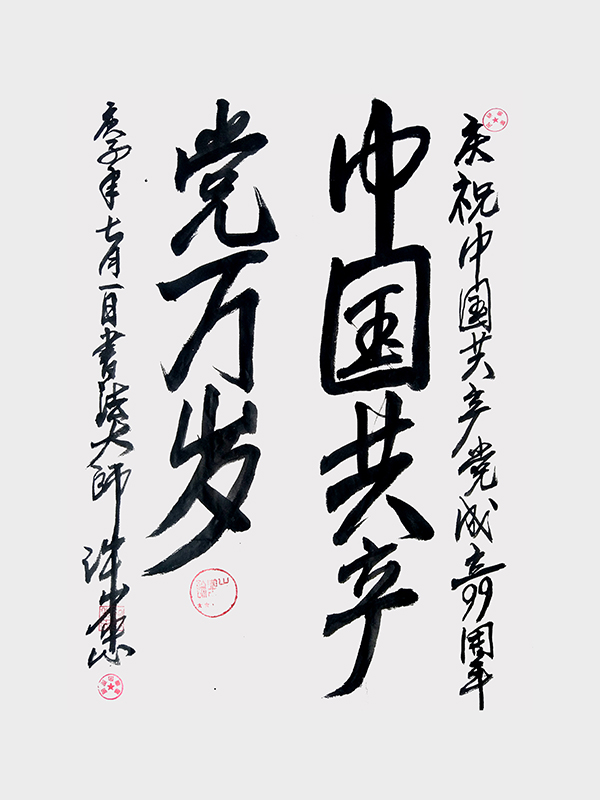 庆祝中国共产党成立99周年
中国共产
党万岁
庚子年七月一日書法大师许